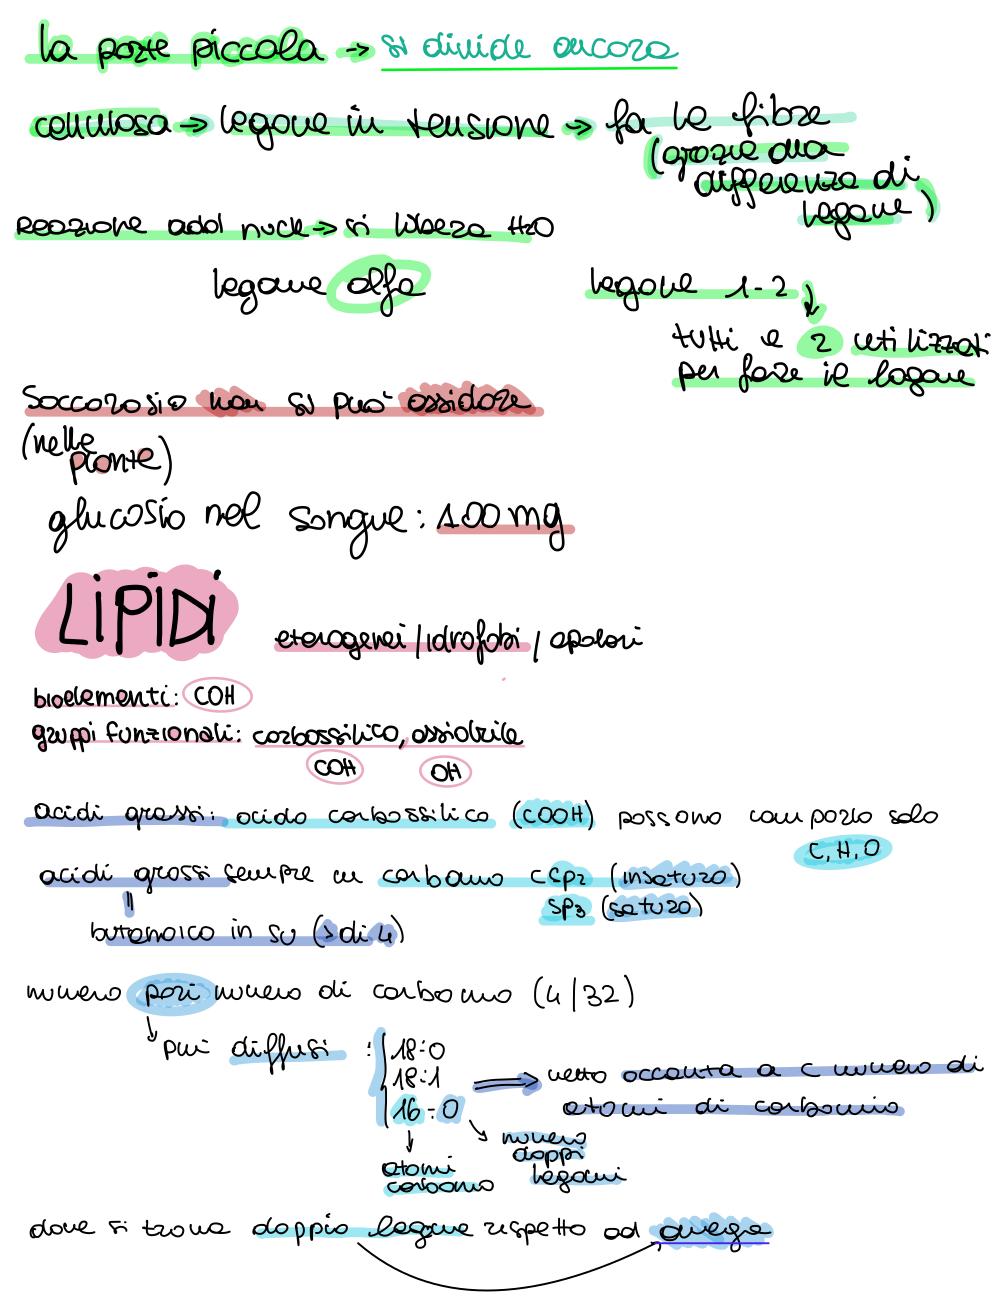 la parte piccola → si divide ancora
cellulosa → legame in tensione → fa le fibre
(grazie alla
differenza di
legame)
Reazione add nucl → si libera H2O
legame alfa
legame 1-2
tutti e 2 utilizzati
per fare il legame
Saccarosio non si può ossidare
(nelle
piante)
glucosio nel sangue: 100 mg
LIPIDI
eterogenei / idrofobi / apolari
bioelementi: COH
gruppi funzionali: carbossilico, ossidrile
COH OH
acidi grassi: acido carbossilico (COOH) possono comporlo solo
C, H, O
acidi grassi sempre in carbonio CSP2 (insaturo)
SP3 (saturo)
butanoico in su (> di 4)
numero pari numero di carbonio (4/32)
più diffusi :
18:0
18:1
16-0
⇒ metto accanto a C numero di
atomi di carbonio
atomi
carbonio
numero
doppi
legami
dove si trova doppio legame rispetto ad omega